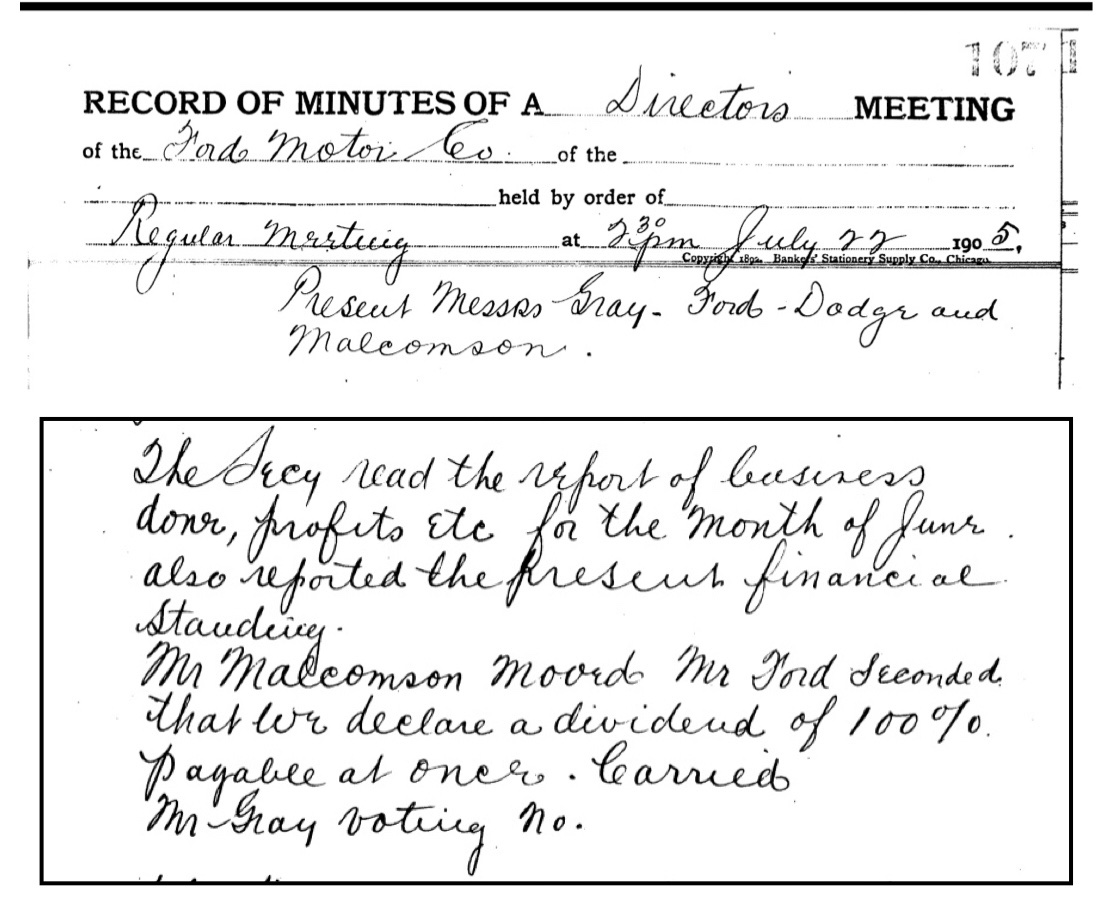 107
RECORD OF MINUTES OF A Directors MEETING
of the Ford Motor Co. of the
held by order of
Regular Meeting at 2 30 pm July 22 1905,
Copyright 1892. Bankers' Stationery Supply Co., Chicago.
Present Messrs Gray - Ford - Dodge and
Malcomson.
The Secy read the report of business
done, profits etc for the month of June.
also reported the present financial
standing.
Mr Malcomson moved Mr Ford seconded
that we declare a dividend of 100%.
payable at once. Carried
Mr Gray voting no.